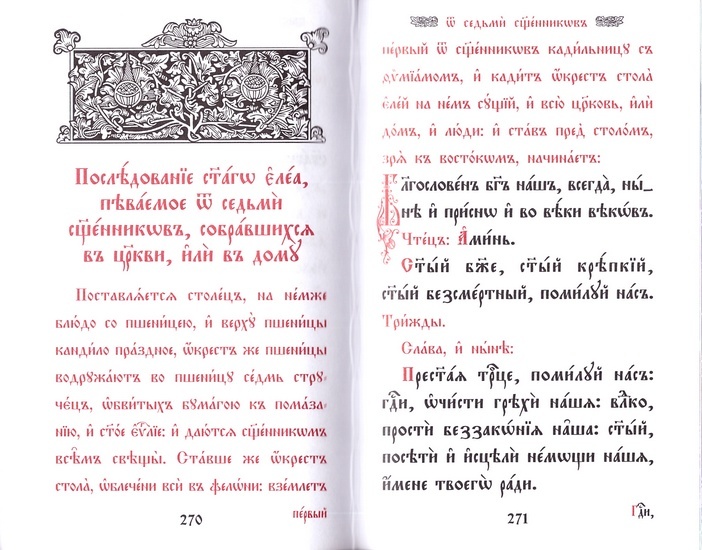 Послѣ́дованїе ст҃а́гѡ є҆ле́а,
пѣва́емое ѿ седьмѝ
сщ҃е́нникѡвъ, собра́вшихся
въ цр҃кви, и҆лѝ въ домꙋ̀
Поставлѧ́етсѧ столе́цъ, на не́мже
блю́до со пшени́цею, и҆ верхꙋ̀ пшени́цы
канди́ло пра́здное, ѡ҆́крестъ же пшени́цы
водрꙋжа́ютъ во пшени́цꙋ се́дмь стрꙋ́-
чєцъ, ѡ҆бви́тыхъ бꙋма́гою къ пома́за-
нїю, и҆ ст҃о́е є҆ѵⷢ҇лїе: и҆ даю́тсѧ сщ҃е́нникѡмъ
всѣ̑мъ свѣщы̀. Ста́вше же ѡ҆́крестъ
стола̀, ѡ҆блече́ни всѝ въ фелѡ́ни: взе́млетъ
пе́рвый
270
ѿ седьмѝ сщ҃е́нникѡвъ
пе́рвый ѿ сщ҃е́нникѡвъ кади́льницꙋ съ
ѳѷмїа́момъ, и҆ кади́тъ ѡ҆́крестъ стола̀
є҆ле́й на не́мъ сꙋ́щїй, и҆ всю̀ цр҃ковь, и҆лѝ
до́мъ, и҆ лю́ди: и҆ ста́въ пред̾ столо́мъ,
зрѧ̀ къ восто́кѡмъ, начина́етъ:
Блг҃ослове́нъ бг҃ъ на́шъ, всегда̀, ны́-
нѣ и҆ при́снѡ и҆ во вѣ́ки вѣкѡ́въ.
Чте́цъ: А҆ми́нь.
Ст҃ы́й бж҃е, ст҃ы́й крѣ́пкїй,
ст҃ы́й безсме́ртный, поми́лꙋй на́съ.
Три́жды.
Сла́ва, и҆ ны́нѣ:
Прест҃а́ѧ трⷪ҇це, поми́лꙋй на́съ:
гдⷭ҇и, ѡ҆чи́сти грѣхѝ на́шѧ: влⷣко,
прости́ беззакѡ́нїѧ на̑ша: ст҃ы́й,
посѣтѝ и҆ и҆сцѣлѝ не́мѡщи на́шѧ,
и҆́мене твоегѡ̀ ра́ди.
Гдⷭ҇и,
271